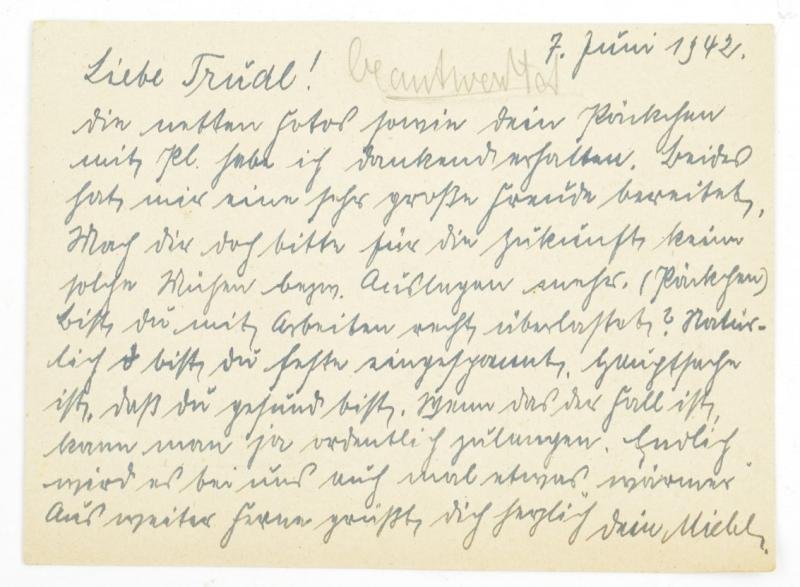 7. Juni 1942.
Liebe Trudl! beantwortet
die netten Fotos sowie dein Päckchen
mit Pl. habe ich dankend erhalten. Beides
hat mir eine sehr große Freude bereitet.
Mach dir doch bitte für die Zukunft keine
solche Mühen bezw. Auslagen mehr. (Päckchen)
Bist du mit Arbeiten recht überlastet? Natür-
lich bist du feste eingespannt, Hauptsache
ist, daß du gesund bist. Wenn das der Fall ist,
kann man ja ordentlich zulangen. Endlich
wird es bei uns auch mal etwas wärmer
Aus weiter Ferne grüßt dich herzlich dein